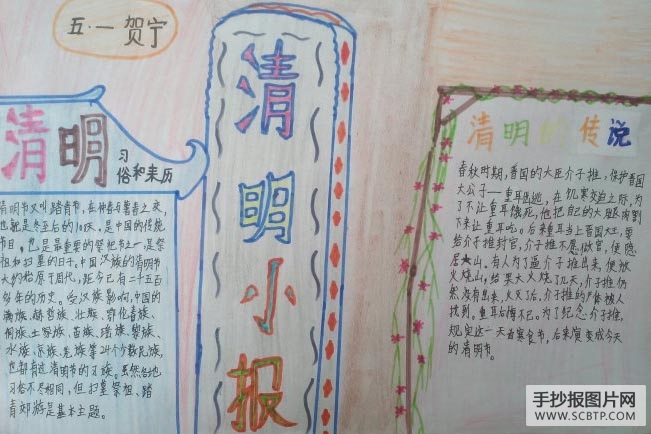 五·一 贺宁
清明 习
俗和来历
清明节又叫踏青节，在仲春与暮春之交，
也就是冬至后的108天。是中国的传统
节日，也是最重要的祭祀节之一，是祭
祖和扫墓的日子。中国汉族的清明节
大约始原于周代，距今已有二千五百
多年的历史。受汉族影响，中国的
满族、赫哲族、壮族、鄂伦春族、
侗族、土家族、苗族、瑶族、黎族、
水族、京族、羌族等24个少数民族，
也都有过清明节的习俗。虽然各地
习俗不尽相同，但扫墓祭祖、踏
青郊游是基本主题。
清
明
小
报
清明的传说
春秋时期，晋国的大臣介子推，保护晋国
大公子——重耳出逃，在饥寒交迫之际，为
了不让重耳饿死，他把自己的大腿肉割
下来让重耳吃。后来重耳当上晋国大王，要
给介子推封官，介子推不愿做官，便隐
居 山。有人为了逼介子推出来，便放
火烧山，结果大火烧了几天，介子推仍
然没有出来，火灭了后，介子推的尸体被人
找到。重耳后悔不已。为了纪念介子推，
规定这一天为寒食节，后来演变成今天
的清明节。
手抄报图片网
WWW.SCBTP.COM